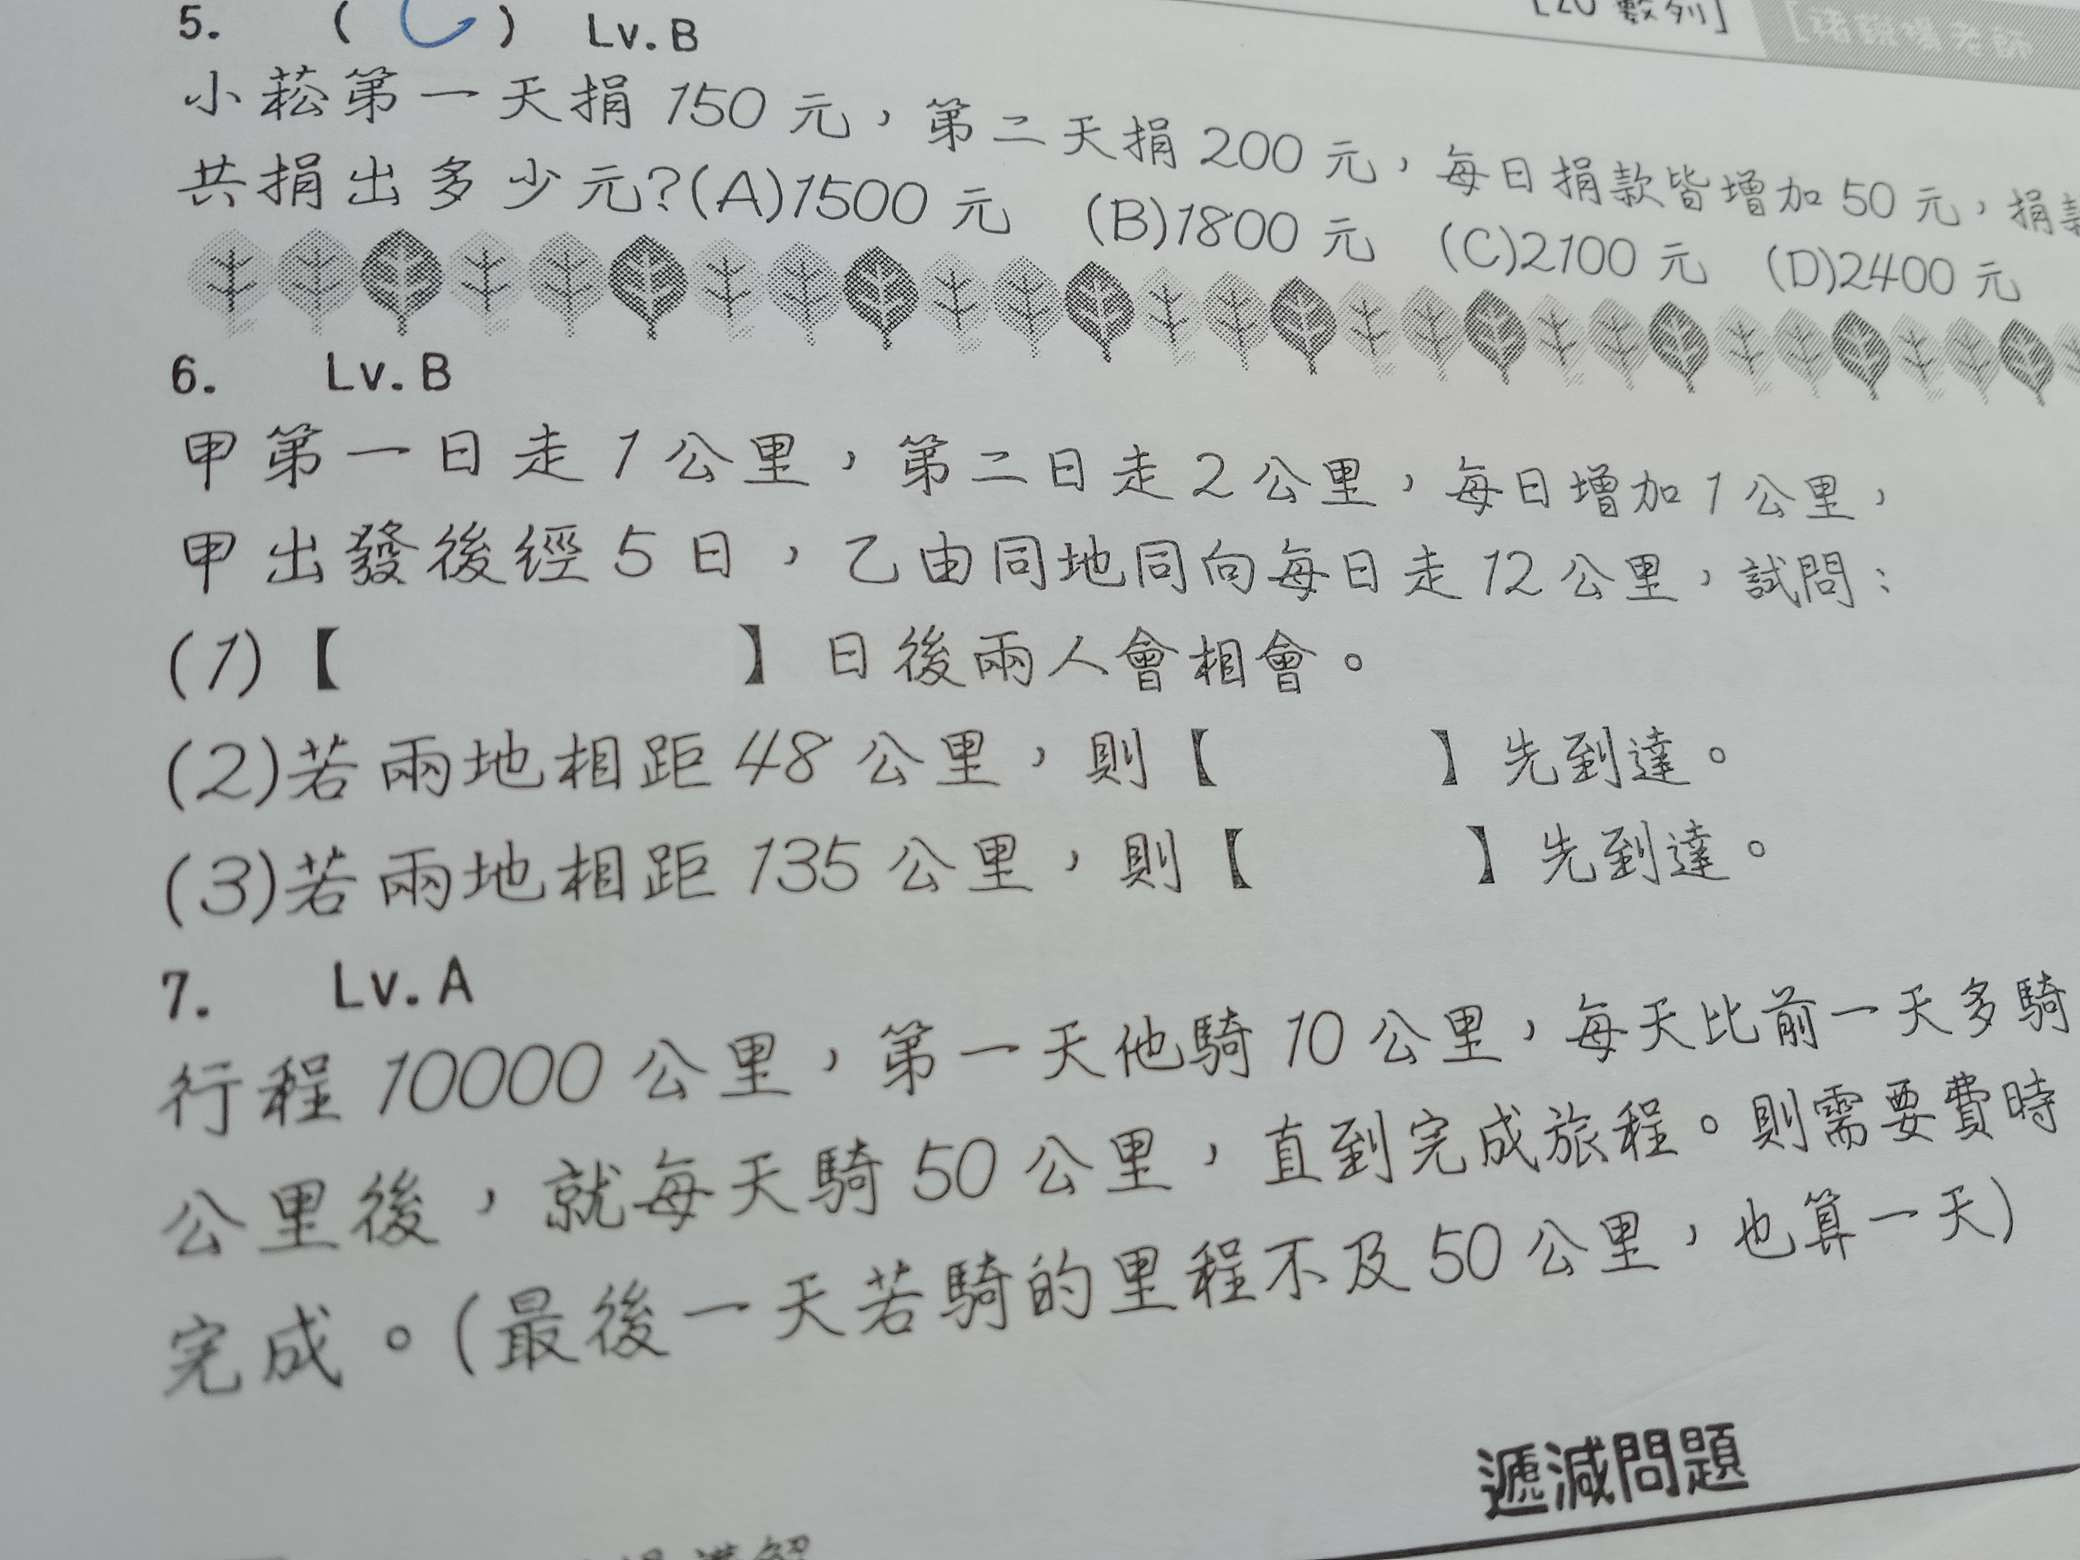 [20 數列]
老師
5. ( ) Lv.B
小菘第一天捐 150 元，第二天捐 200 元，每日捐款皆增加 50 元，捐
共捐出多少元?(A)1500 元 (B)1800 元 (C)2100 元 (D)2400 元
6. Lv.B
甲第一日走 1 公里，第二日走 2 公里，每日增加 1 公里，
甲出發後經 5 日，乙由同地同向每日走 12 公里，試問：
(1)【 】日後兩人會相會。
(2)若兩地相距 48 公里，則【 】先到達。
(3)若兩地相距 135 公里，則【 】先到達。
7. Lv.A
行程 10000 公里，第一天他騎 10 公里，每天比前一天多騎
公里後，就每天騎 50 公里，直到完成旅程。則需要費時
完成。(最後一天若騎的里程不及 50 公里，也算一天)
遞減問題